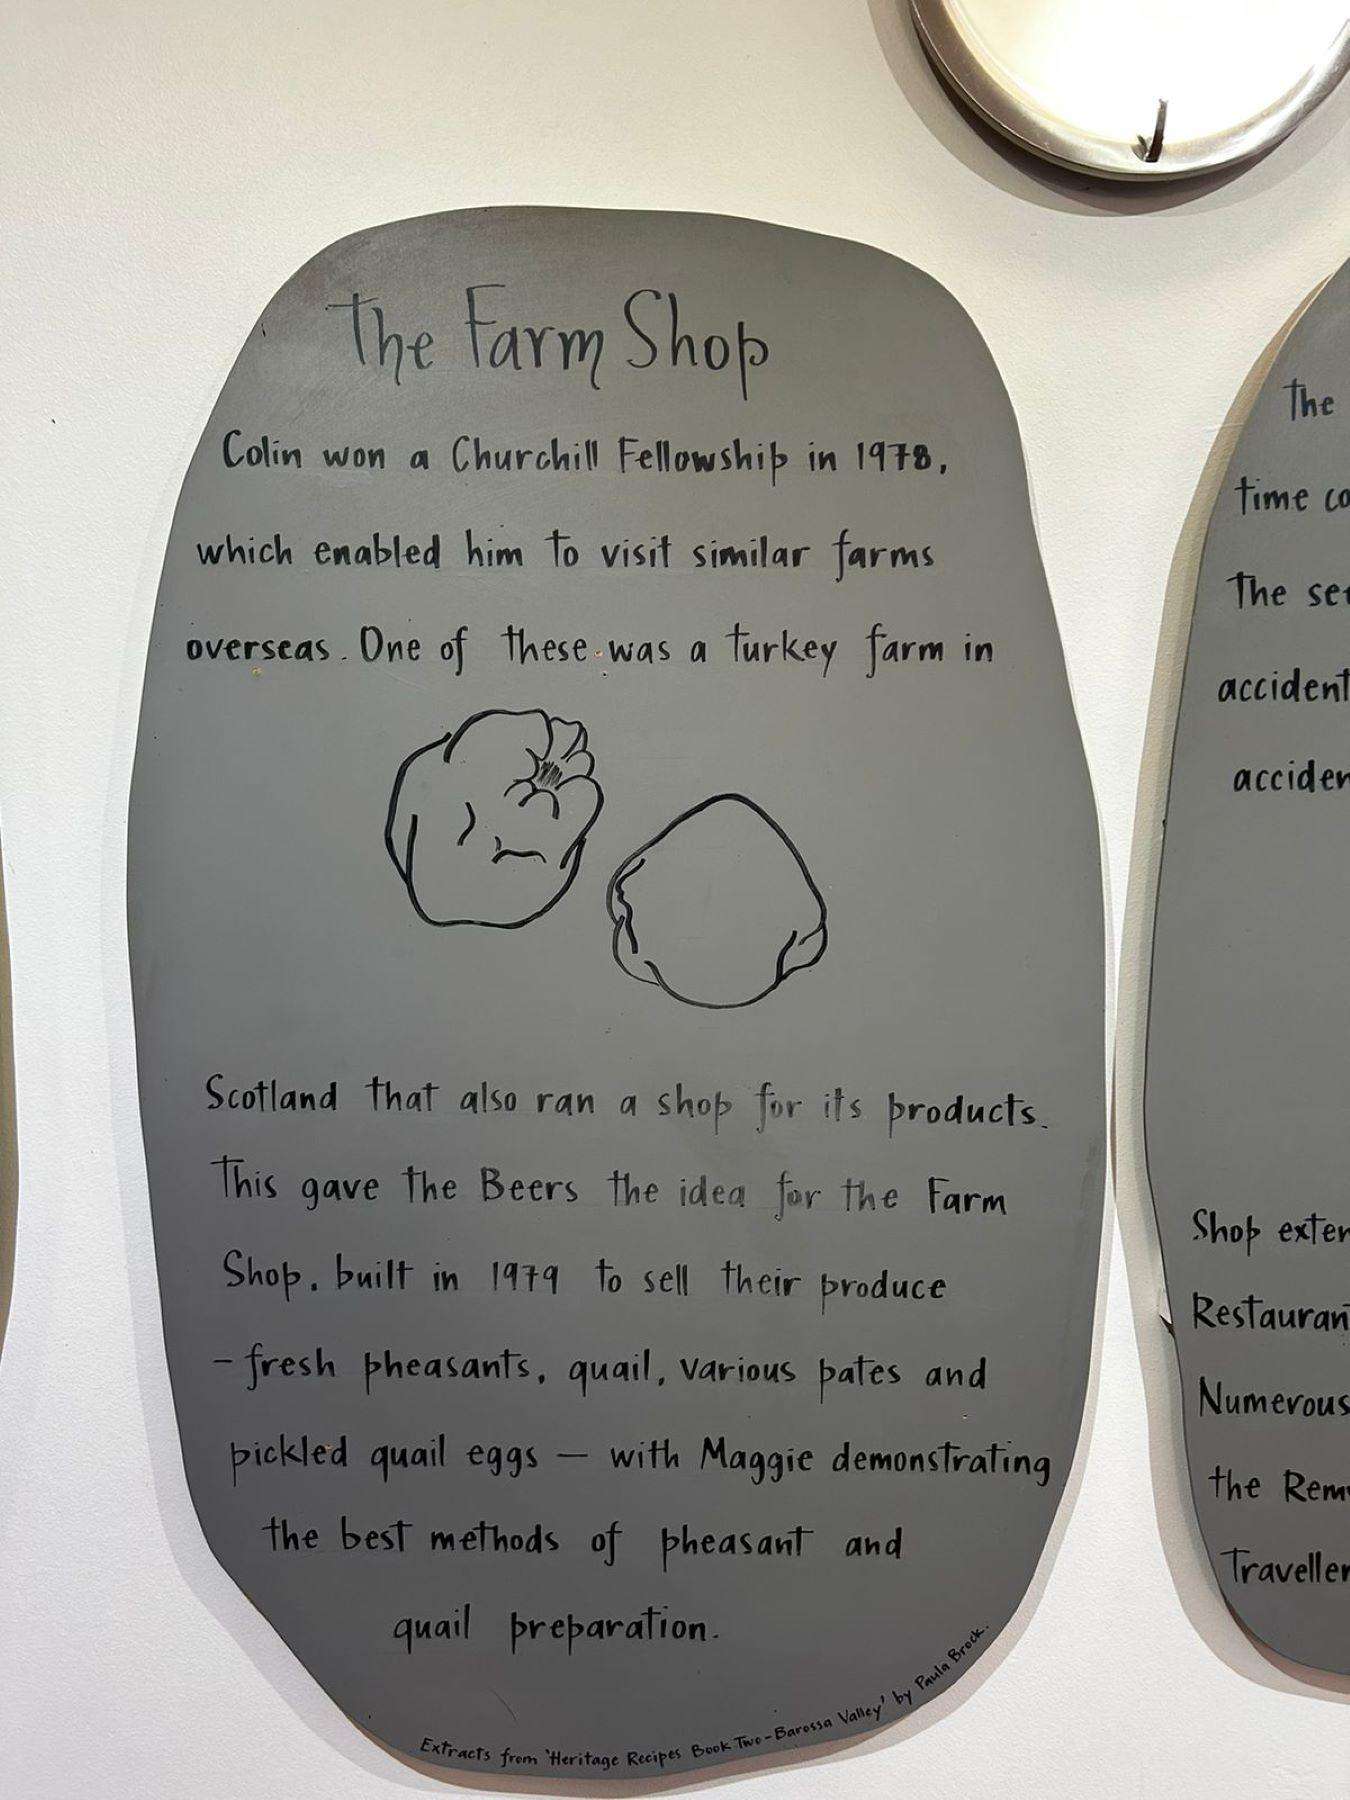 The Farm Shop
Colin won a Churchill Fellowship in 1978,
which enabled him to visit similar farms
overseas. One of these was a turkey farm in
Scotland that also ran a shop for its products.
This gave the Beers the idea for the Farm
Shop, built in 1979 to sell their produce
- fresh pheasants, quail, various pates and
pickled quail eggs — with Maggie demonstrating
the best methods of pheasant and
quail preparation.
Extracts from 'Heritage Recipes Book Two - Barossa Valley' by Paula Brock.
The
time co
The se
accident
acciden
Shop exten
Restauran
Numerous
the Rem
Traveller